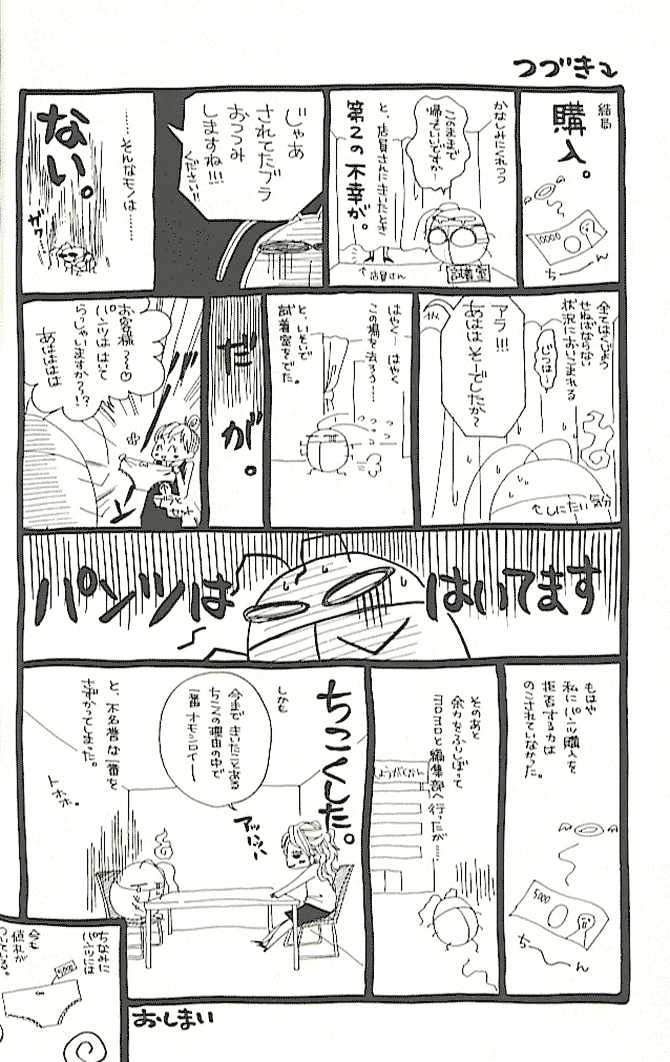 つづき
結局
購入。
10000
ちーん
かなしみにくれつつ
このままで
帰っていいですか…
と、店員さんにきいたとき
第2の不幸が。
試着室
↑店員さん
じゃあ
されてたブラ
おつつみ
しますね!!!
ください!!
……そんなモノは……
ない。
全てはくじょう
せねばならない
状況においこまれる
じつは…
アラ!!!
あははそーでしたか~
しにたい気分
はやく…はやく
この場を去ろう…
と、いそいで
試着室をでた。
だが。
お客様~~♡
パンツははいて
らっしゃいますから~!?
あははははは
パンツは
はいてます
もはや
私にパンツ購入を
拒否する力は
のこされていなかった。
5000
ちーん
そのあと
余力をふりしぼって
ヨロヨロと編集部へ行ったが……
しょうがくかん
ちこくした。
しかも
今まできいたことある
ちこくの理由の中で
一番オモシロイー
アッハッハ
と、不名誉な一番を
さずかってしまった。
トホホ。
ちなみに
パンツには
今も
値札が
ついている。
5000
おしまい